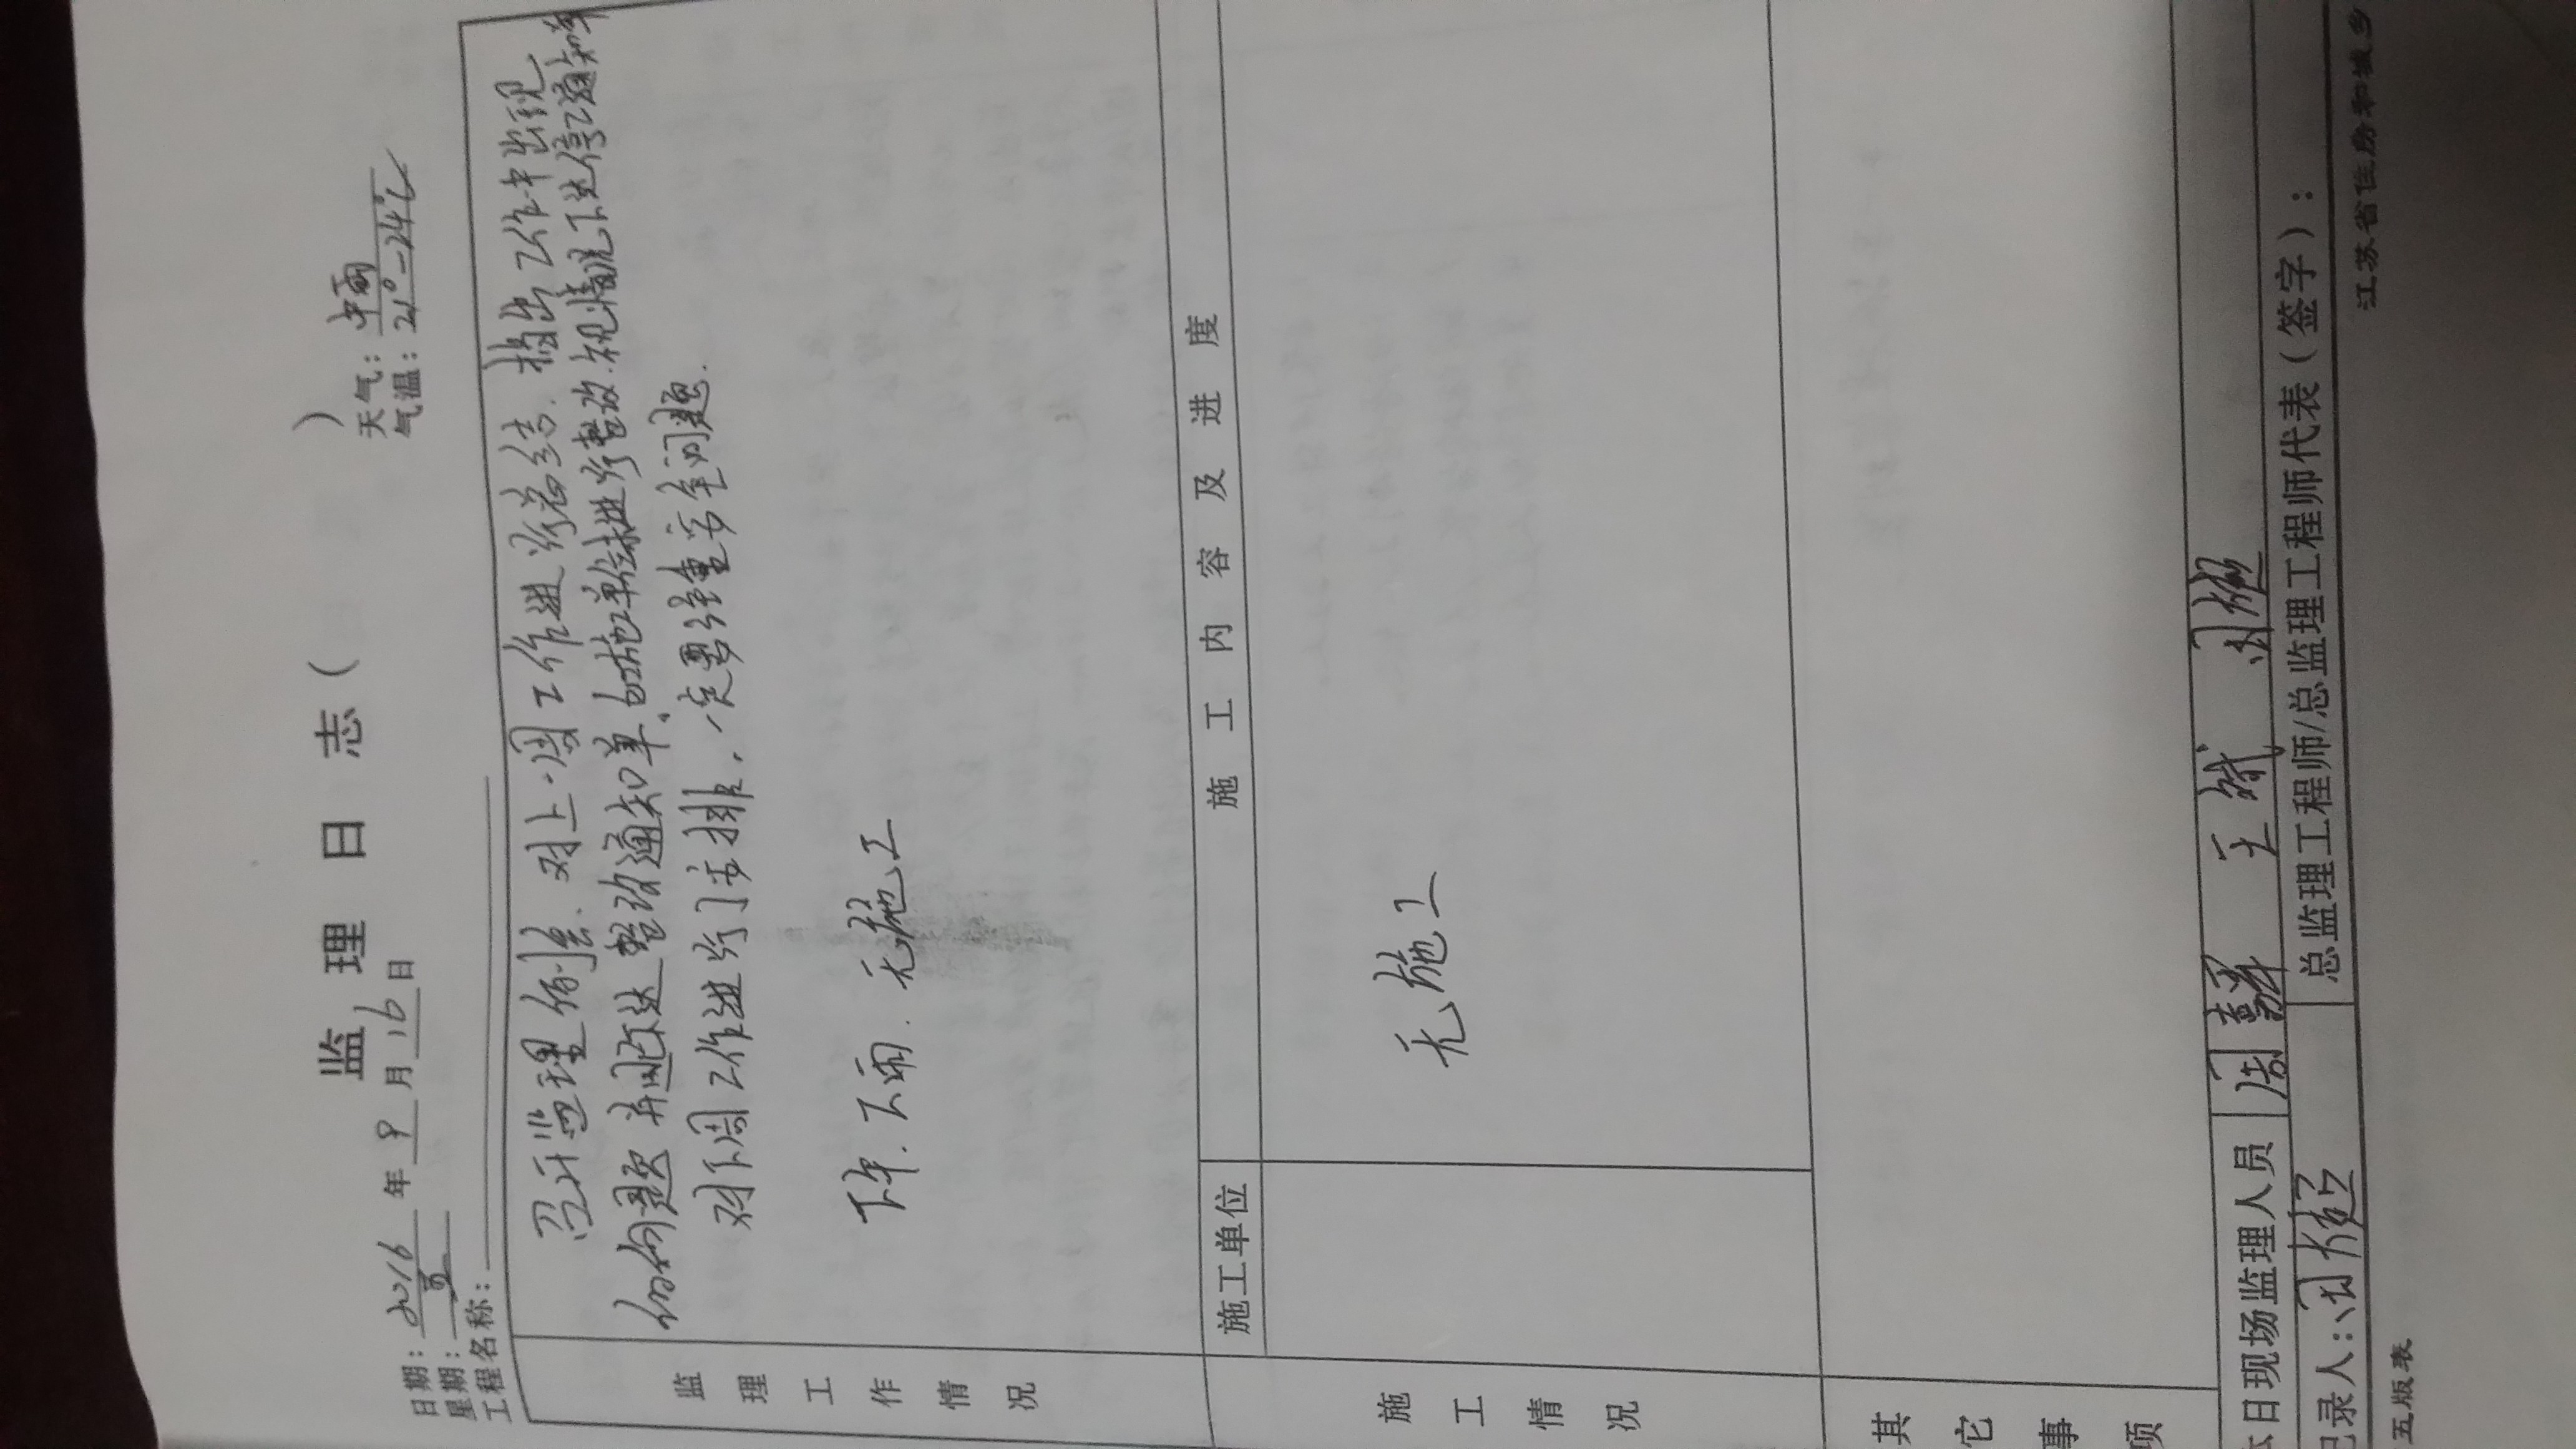 监 理 日 志 (        )
日期：2016年9月16日 天气：中雨
星期：五 气温：21°-24℃
工程名称：
监理工作情况
召开监理例会. 对上周工作进行总结. 指出工作中出现
的问题 并下达整改通知单. 如施工单位未进行整改. 视情况下达停工通知单
对下周工作进行了安排, 一定要注重安全问题.
下午. 下雨. 无施工
施工情况
施工单位 施工内容及进度
无施工
其它事项
本日现场监理人员 周 王斌
记录人： 总监理工程师/总监理工程师代表（签字）：
五版表 江苏省住房和城乡